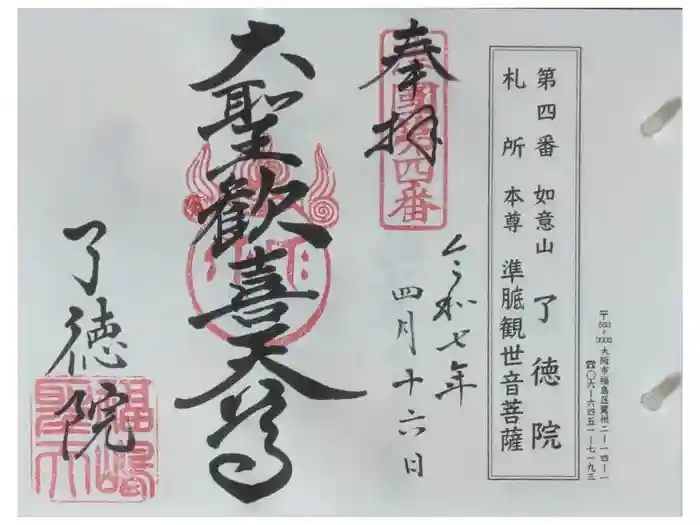 〒553-0002 大阪市福島区鷺州二-一四-一
☎〇六-六四五一-七一九三
第四番 如意山 了徳院
札所 本尊 準胝観世音菩薩
奉拝
第四番
令和七年
四月十六日
大聖歓喜天尊
了徳院